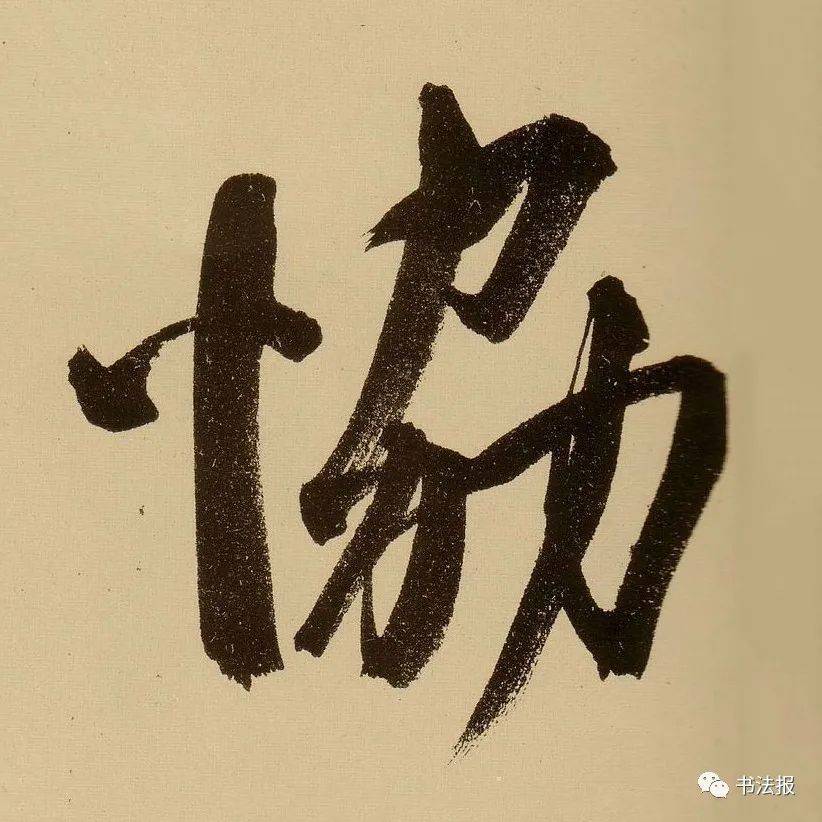 協
书法报